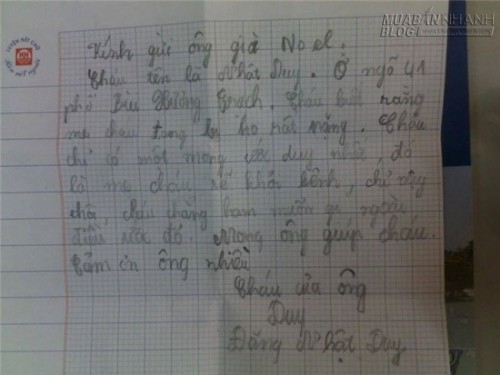 MUABANNHANH
BLOG
Kính gửi ông già Noel.
Cháu tên là Nhật Duy. Ở ngõ 41
phố Bùi Xương Trạch. Cháu biết rằng
mẹ cháu đang bị ho rất nặng. Cháu
chỉ có một mong ước duy nhất, đó
là mẹ cháu sẽ khỏi bệnh, chỉ vậy
thôi, cháu chẳng ham muốn gì, ngoài
điều ước đó. Mong ông giúp cháu.
Cảm ơn ông nhiều
Cháu của ông
Duy
Đặng Nhật Duy